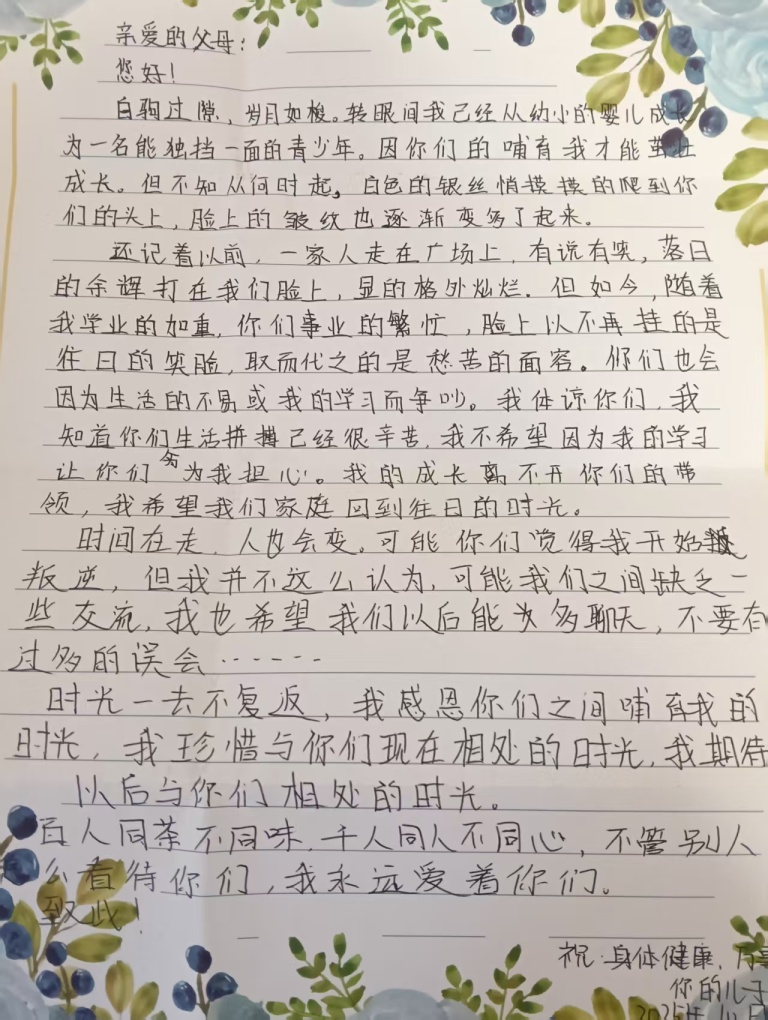 亲爱的父母:
您好!
白驹过隙，岁月如梭。转眼间我已经从幼小的婴儿成长
为一名能独挡一面的青少年。因你们的哺育我才能茁壮
成长。但不知从何时起，白色的银丝悄摸摸的爬到你
们的头上，脸上的皱纹也逐渐变多了起来。
还记着以前，一家人走在广场上，有说有笑，落日
的余辉打在我们脸上，显的格外灿烂。但如今，随着
我学业的加重，你们事业的繁忙，脸上以不再挂的是
往日的笑脸，取而代之的是愁苦的面容。你们也会
因为生活的不易或我的学习而争吵。我体谅你们，我
知道你们生活拼搏已经很辛苦，我不希望因为我的学习
让你们务为我担心。我的成长离不开你们的带
领，我希望我们家庭回到往日的时光。
时间在走，人也会变。可能你们觉得我开始
叛逆，但我并不这么认为，可能我们之间缺乏一
些交流，我也希望我们以后能多聊天，不要有
过多的误会……
时光一去不复返，我感恩你们之间哺育我的
时光，我珍惜与你们现在相处的时光，我期待
以后与你们相处的时光。
百人同茶不同味，千人同人不同心，不管别人
么看待你们，我永远爱着你们。
致此!
祝:身体健康，万事
你的儿子
2025年